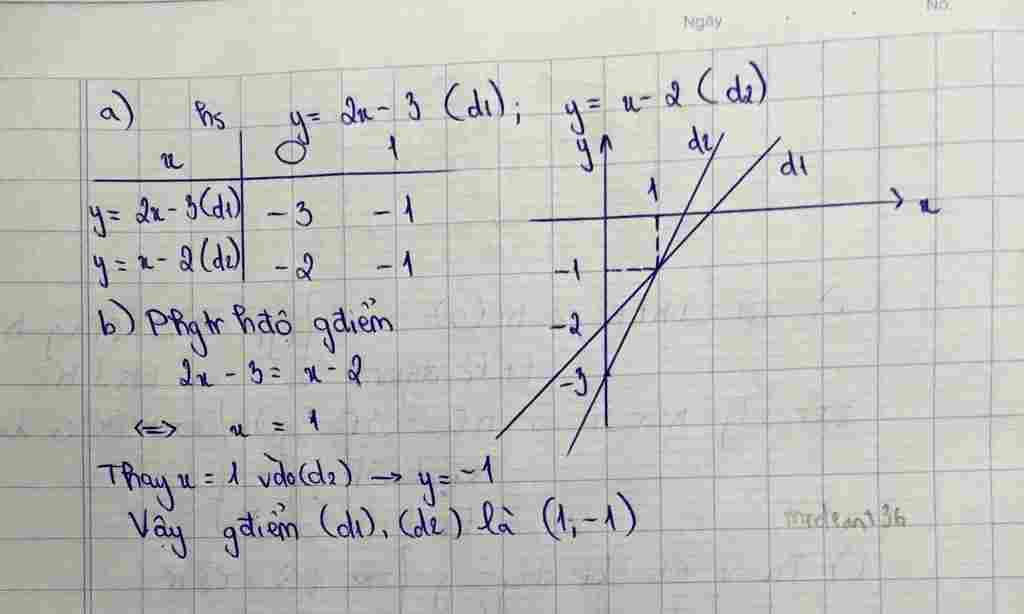 Ngày
No.
a) hs y = 2x - 3 (d1); y = x - 2 (d2)
x 0 1
y = 2x - 3 (d1) -3 -1
y = x - 2 (d2) -2 -1
y
d2
d1
1
x
-1
-2
-3
b) Phgtr hđộ gđiểm
2x - 3 = x - 2
<=> x = 1
Thay x = 1 vào (d2) → y = -1
Vậy gđiểm (d1), (d2) là (1;-1)